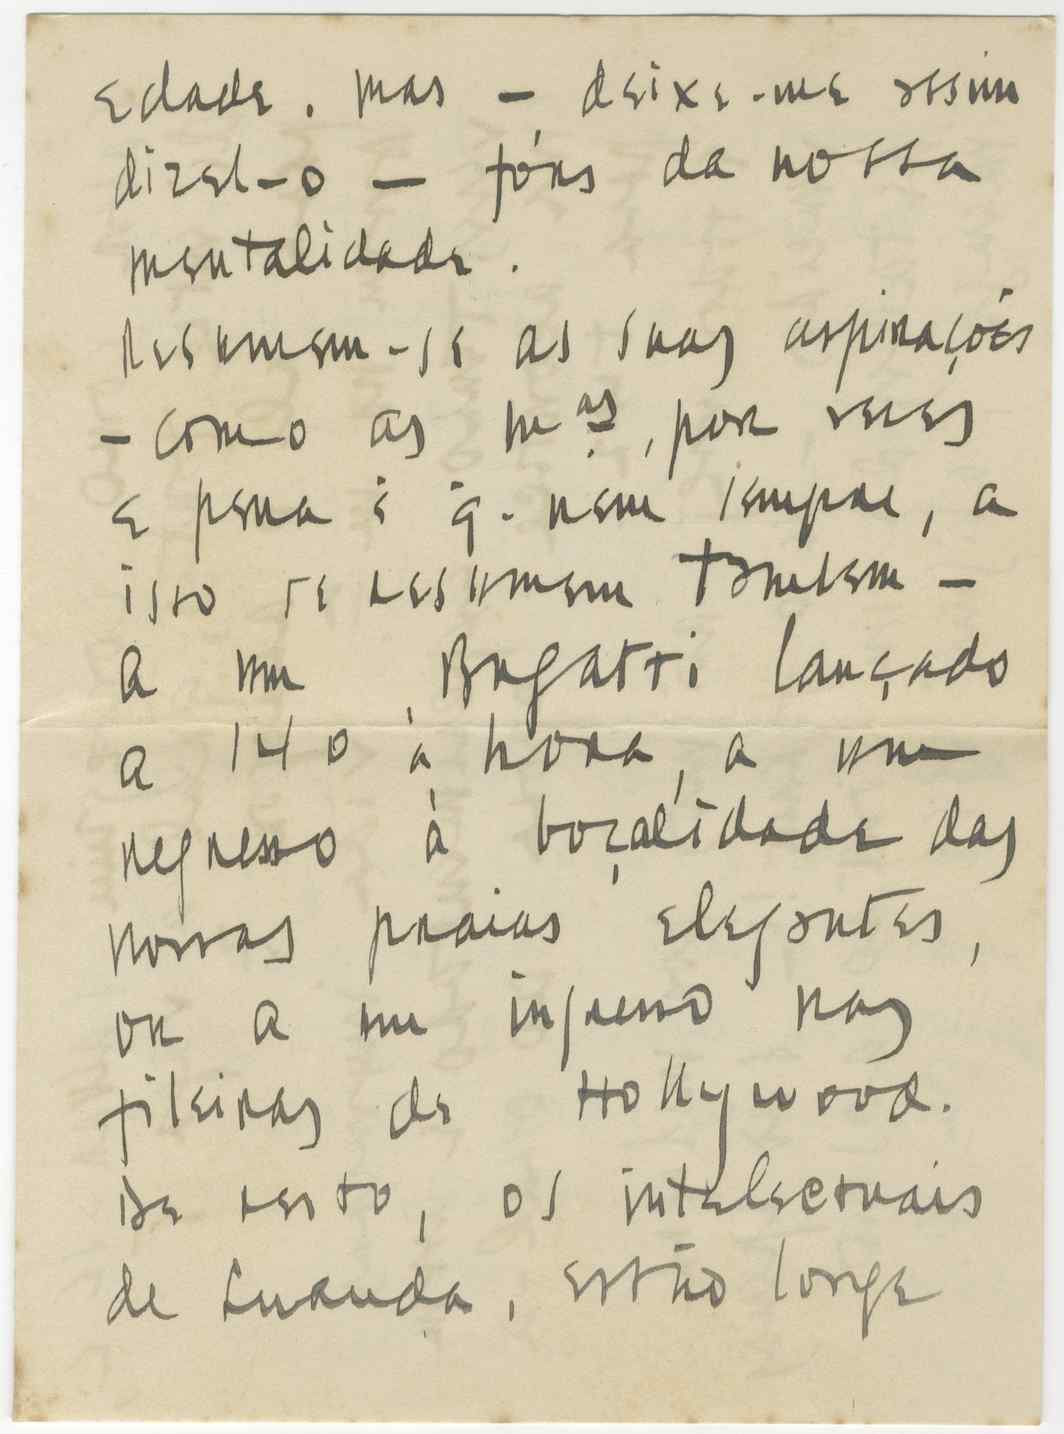 edade. mas — deixe-me assim
dizel-o — fóra da nossa
mentalidade.
Resumem-se as suas aspirações
— como as m.as, por vezes
e pena é q. nem sempre, a
isso se resumem tambem —
a um Bugatti lançado
a 140 à hora, a um
regresso à boçalidade das
nossas praias elegantes,
ou a um ingresso nas
fileiras de Hollywood.
De resto, os intelectuais
de Luanda, estão longe